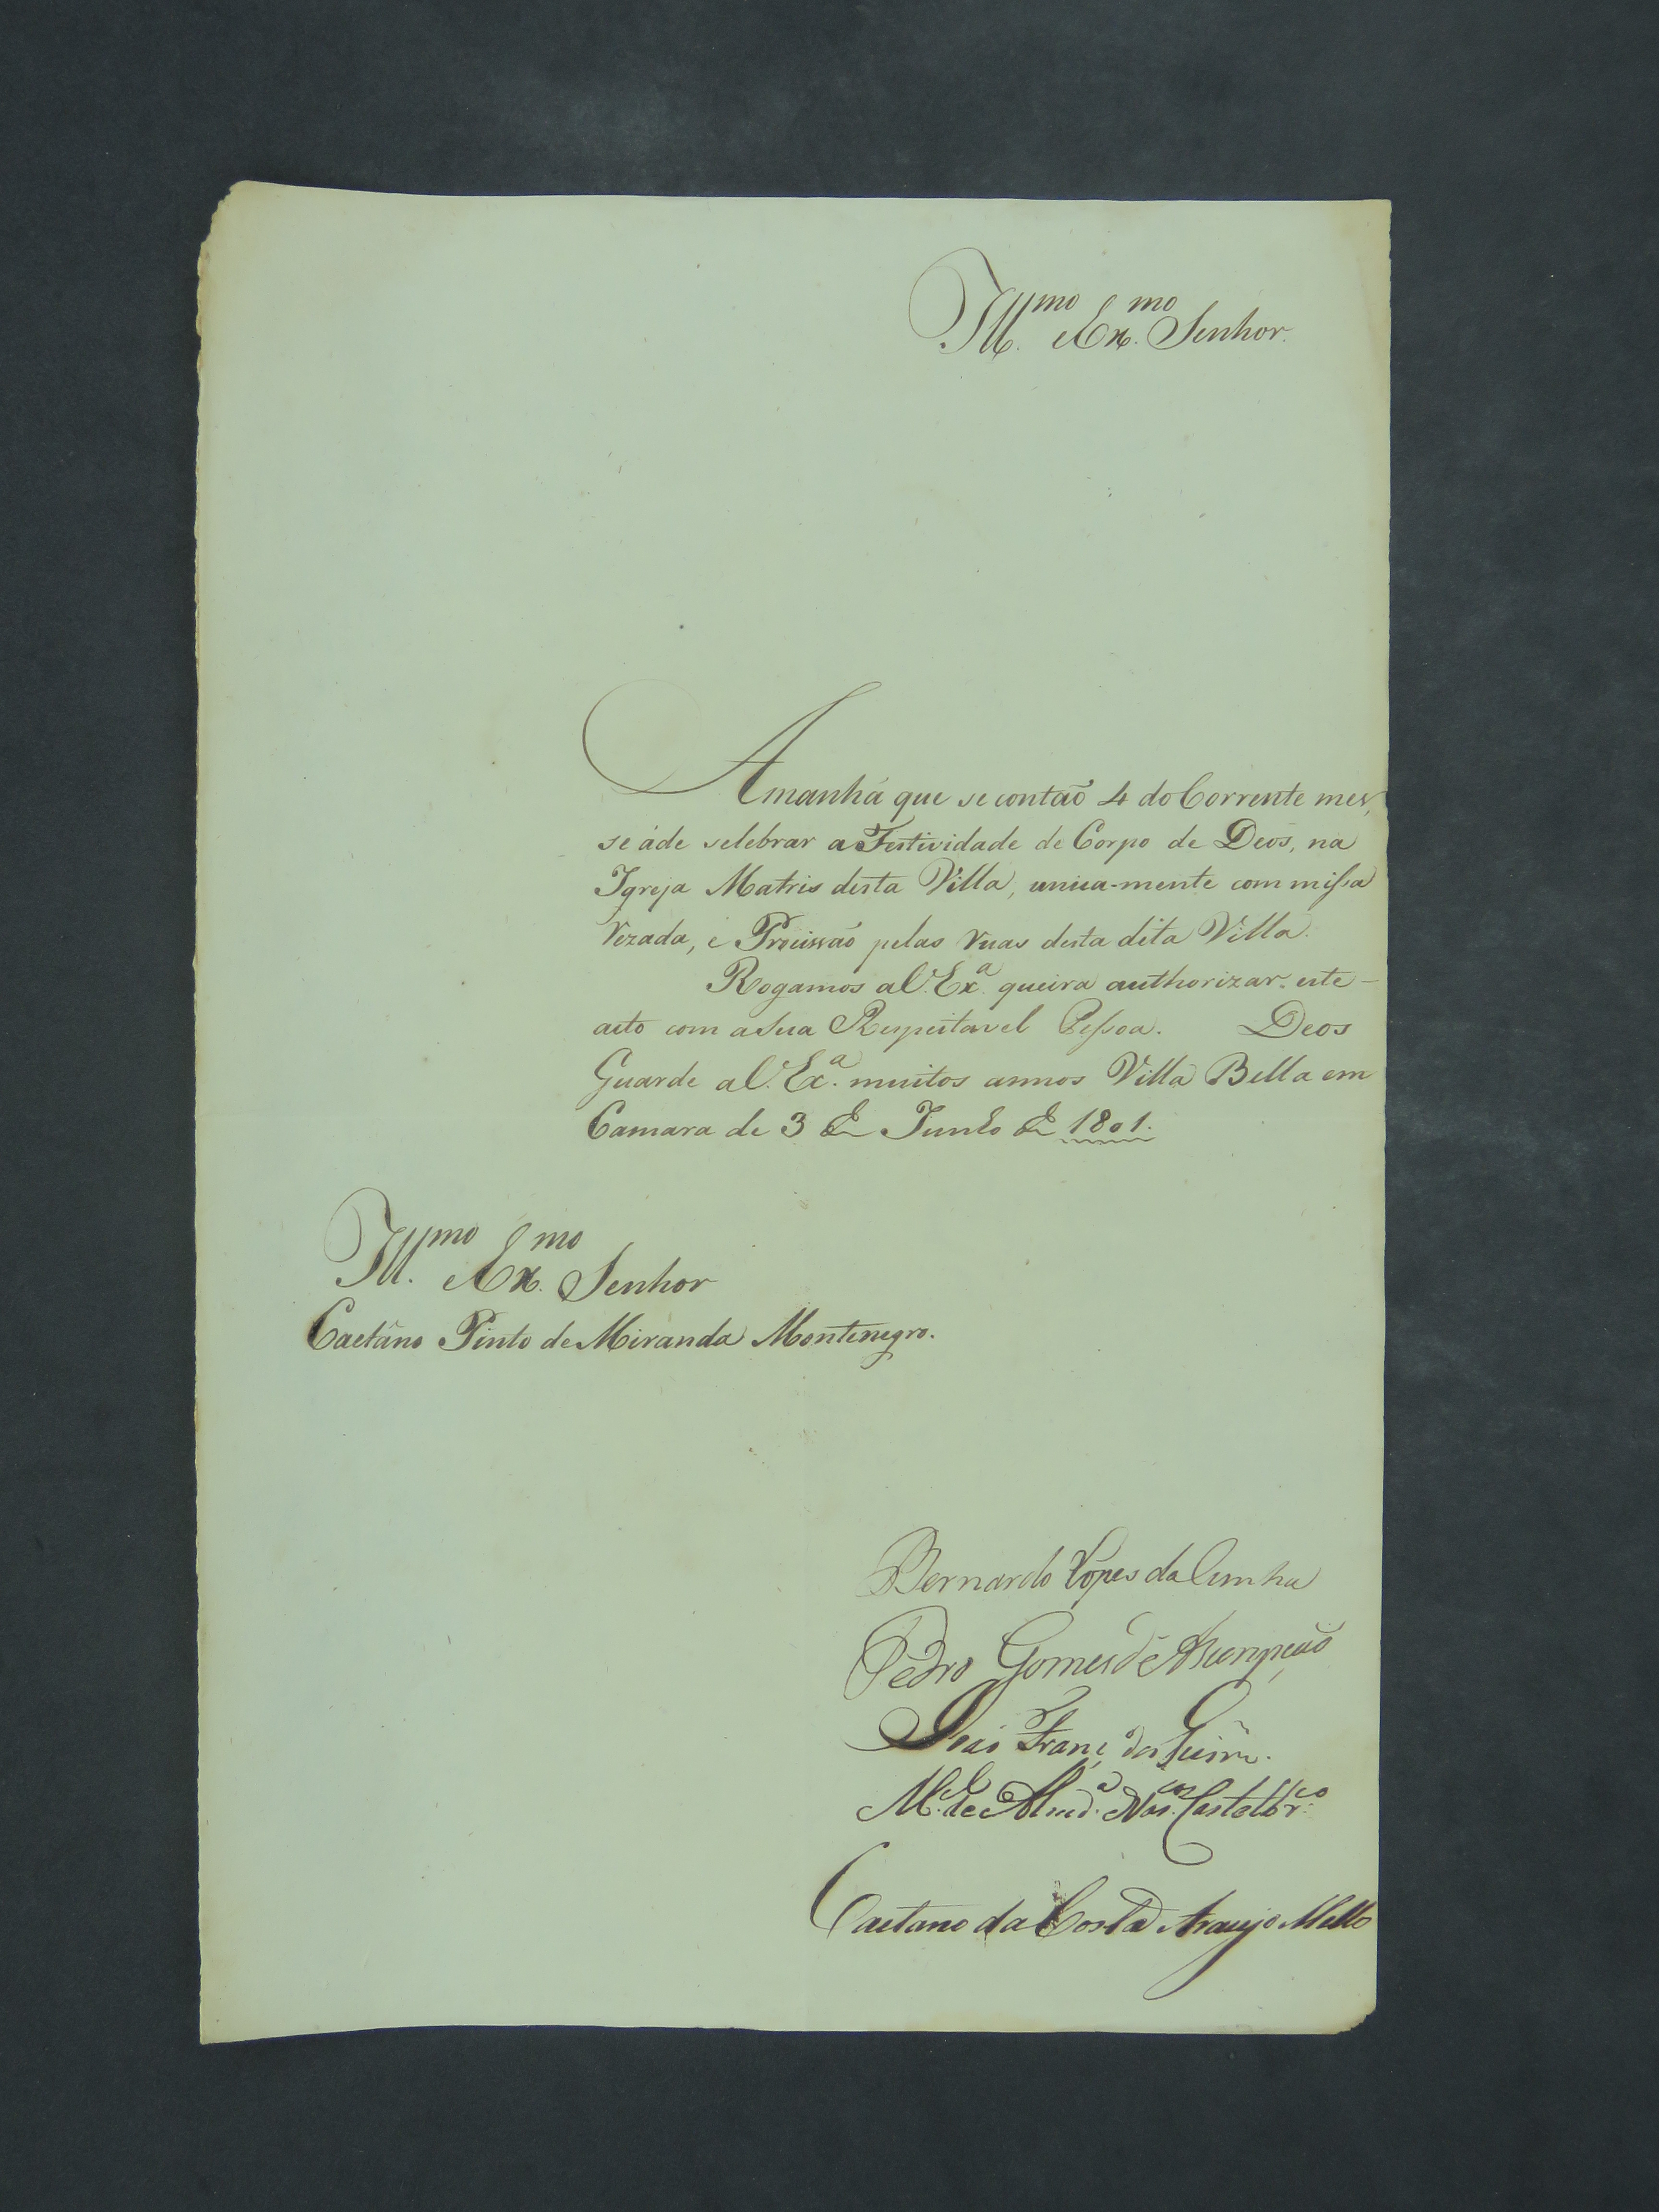 Ill.mo Ex.mo Senhor.
Amanhã que se contaõ 4 do Corrente mes,
se áde selebrar a Festividade de Corpo de Deos, na
Igreja Matris desta Villa, unica-mente com missa
rezada, e Procissaõ pelas ruas desta dita Villa.
Rogamos a V. Ex.a queira authorizar este
acto com a Sua Respeitavel Pessoa. Deos
Guarde a V. Ex.a muitos annos Villa Bella em
Camara de 3 de Junho de 1801.
Ill.mo Ex.mo Senhor
Caetano Pinto de Miranda Montenegro.
Bernardo Lopes da Cunha
Pedro Gomes de Asumpçaõ
Joaõ Franc dos
M.el de Almd.a Castelbr.co
Caetano da Costa Araujo Mello